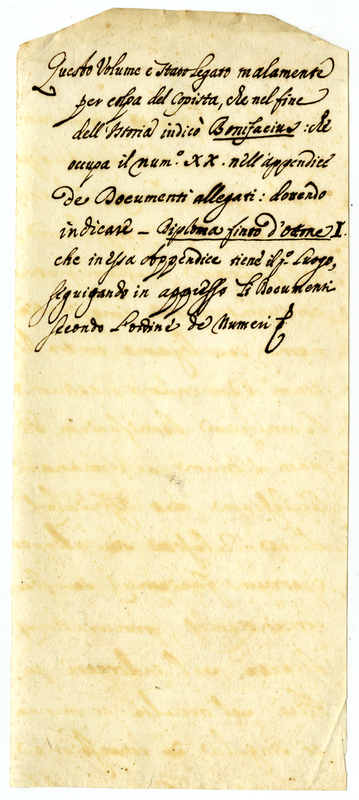 Questo Volume e stato legato malamente
per colpa del Copista, che nel fine
dell'Istoria indicò Bonifacius: che
occupa il num.o XX. nell'appendice
de' Documenti allegati: dovendo
indicare – Diploma finto d'Ottone I.
che in essa Appendice tiene il p.o Luogo,
seguitando in appresso li Documenti
secondo l'ordine de Numeri